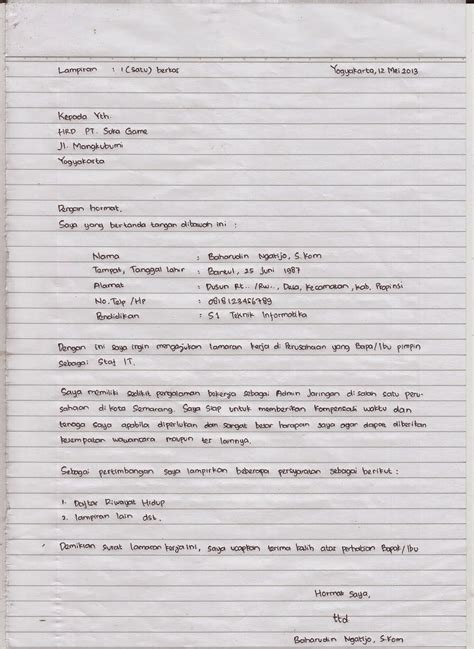 Lampiran : 1 (satu) berkas Yogyakarta, 12 Mei 2013
Kepada Yth.
HRD PT. Suka Game
Jl. Mangkubumi
Yogyakarta
Dengan hormat,
Saya yang bertanda tangan dibawah ini :
Nama : Baharudin Ngatijo, S.Kom
Tempat, Tanggal lahir : Bantul, 25 Juni 1987
Alamat : Dusun Rt.. /Rw.., Desa, Kecamatan, Kab, Propinsi
No. Telp /HP : 08181 23456789
Pendidikan : S1 Teknik Informatika
Dengan ini saya ingin mengajukan lamaran kerja di Perusahaan yang Bapa/Ibu pimpin
sebagai Staf IT.
Saya memiliki sedikit pengalaman bekerja sebagai Admin Jaringan di salah satu peru-
sahaan di kota Semarang. Saya siap untuk memberikan kompensasi waktu dan
tenaga saya apabila diperlukan dan sangat besar harapan saya agar dapat diberikan
kesempatan wawancara maupun tes lainnya.
Sebagai pertimbangan saya lampirkan beberapa persyaratan sebagai berikut :
1. Daftar Riwayat Hidup
2. lampiran lain dst.
Demikian surat lamaran kerja ini, saya ucapkan terima kasih atas perhatian Bapak/Ibu
Hormat Saya,
ttd
Baharudin Ngatijo, S.Kom